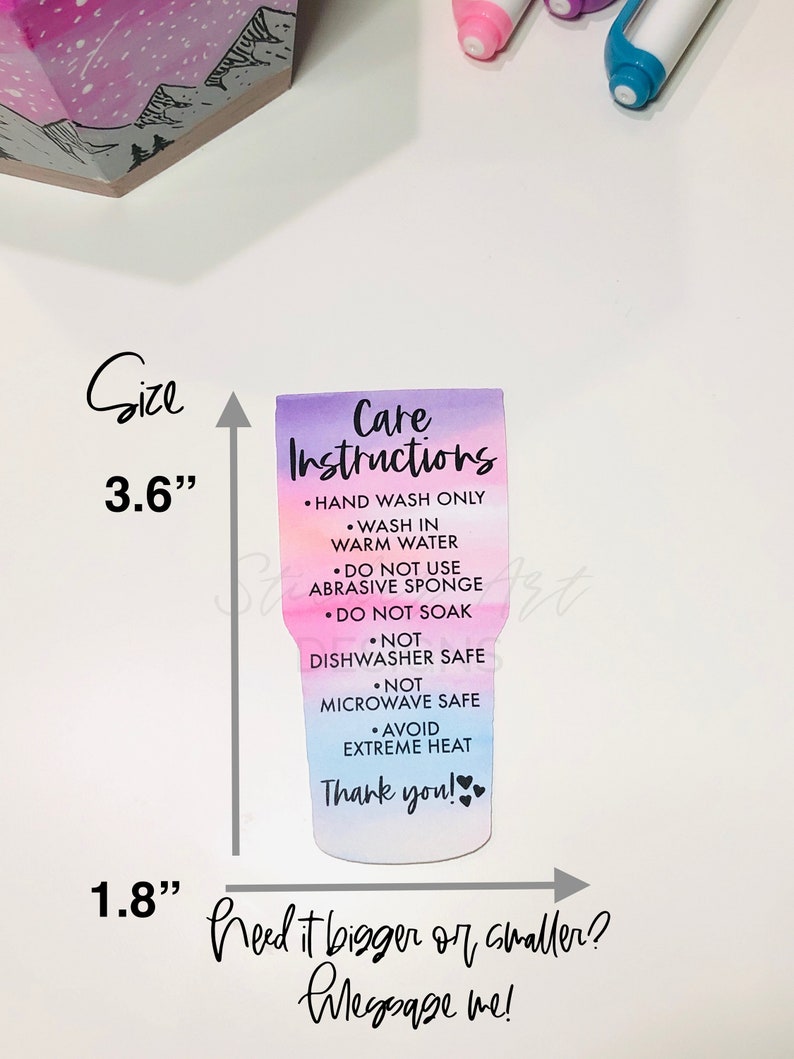 Size
3.6”
Care
Instructions
• HAND WASH ONLY
• WASH IN
WARM WATER
• DO NOT USE
ABRASIVE SPONGE
• DO NOT SOAK
• NOT
DISHWASHER SAFE
• NOT
MICROWAVE SAFE
• AVOID
EXTREME HEAT
Thank you!
1.8”
Need it bigger or smaller?
Message me!
Art
DESIGNS